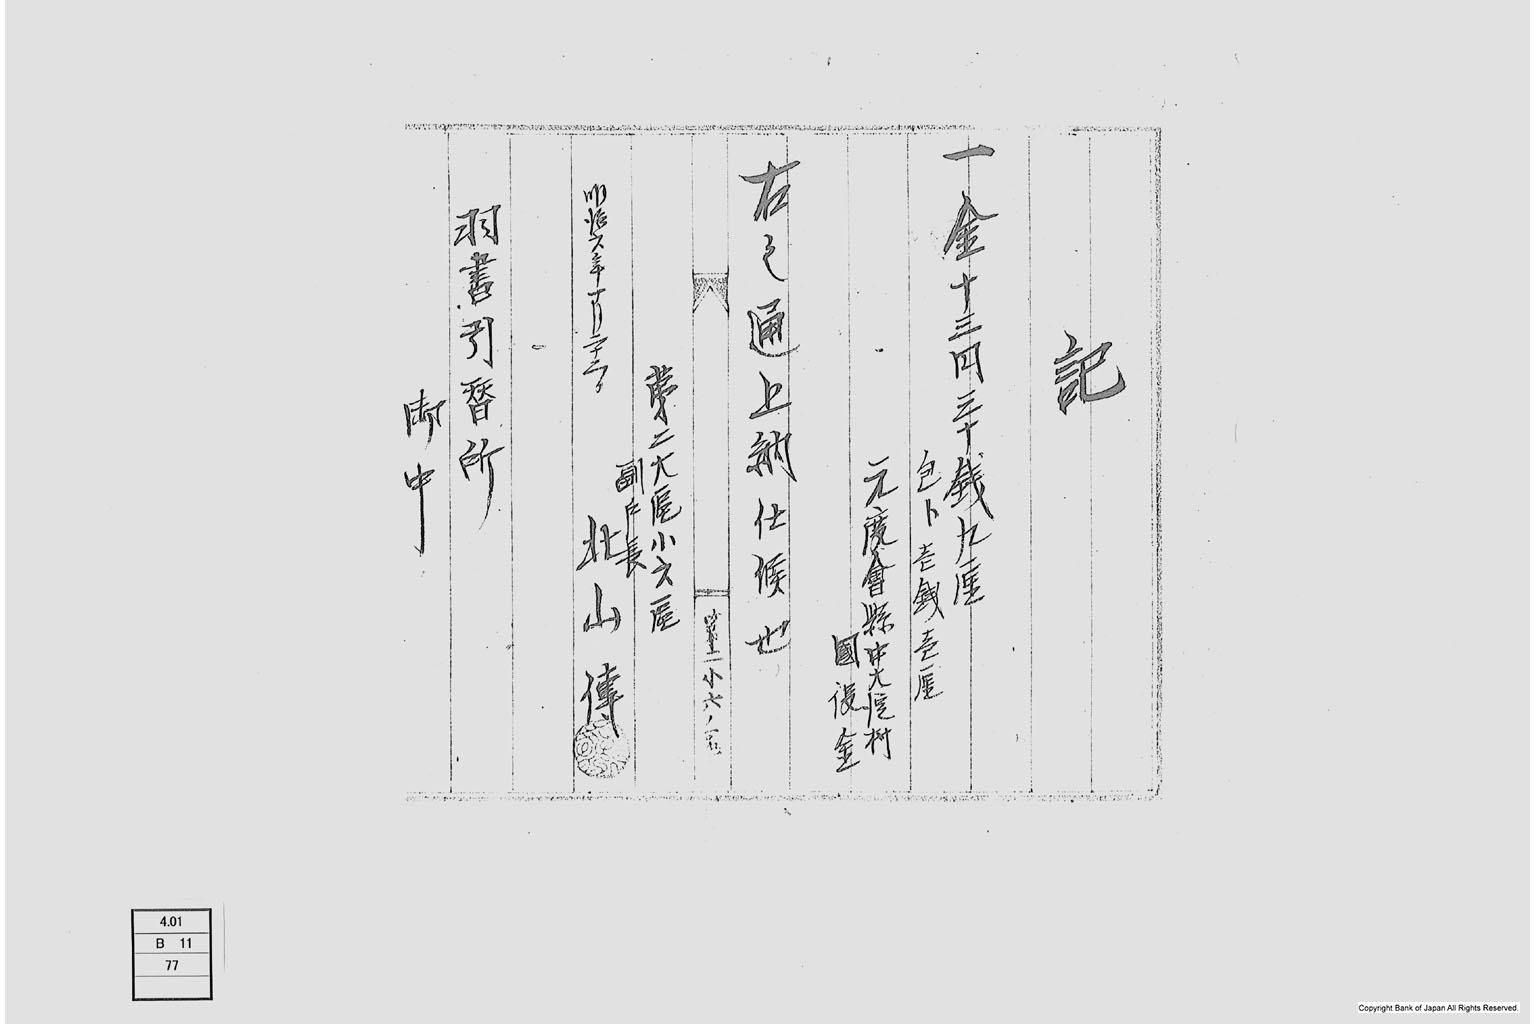 記
一金十三円三十銭九厘
包ト壱銭壱厘
元度會縣中大區村
國役金
右之通上納仕候也
第二大區小六區
副戸長
北山傳
明治六年十月二十二日
羽書引替所
御中
4.01
B 11
77
Copyright Bank of Japan All Rights Reserved.